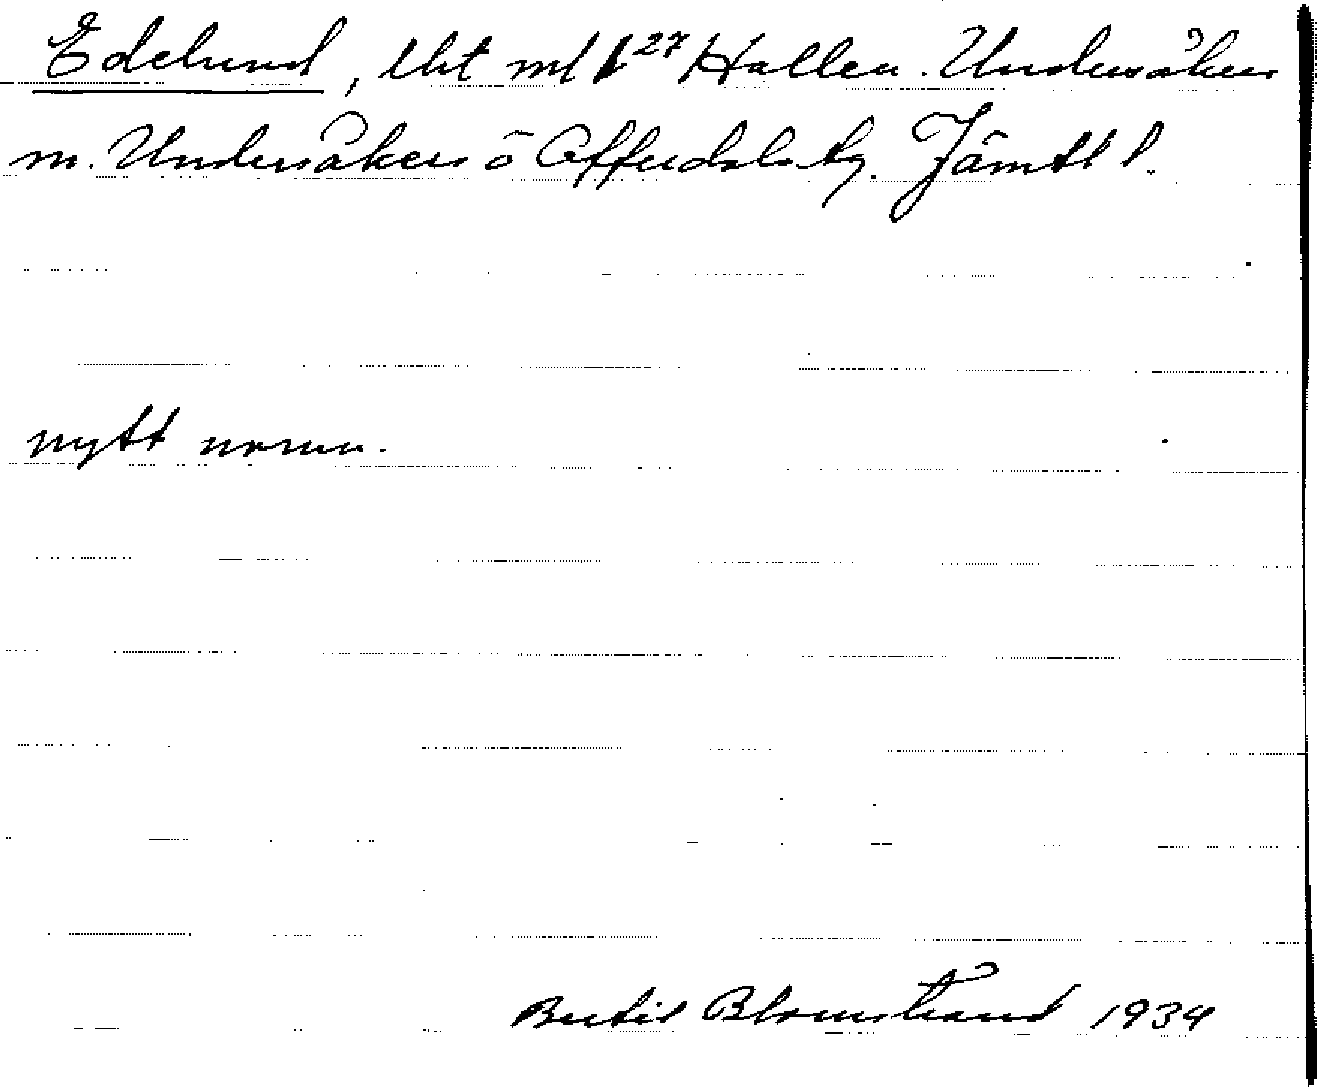 Edelund, lht ml 1²⁷ Hallen. Undersåkers
m. Undersåkers o Offerdals tg. Jämtl l.
nytt namn.
Bertil Blomstrand 1934